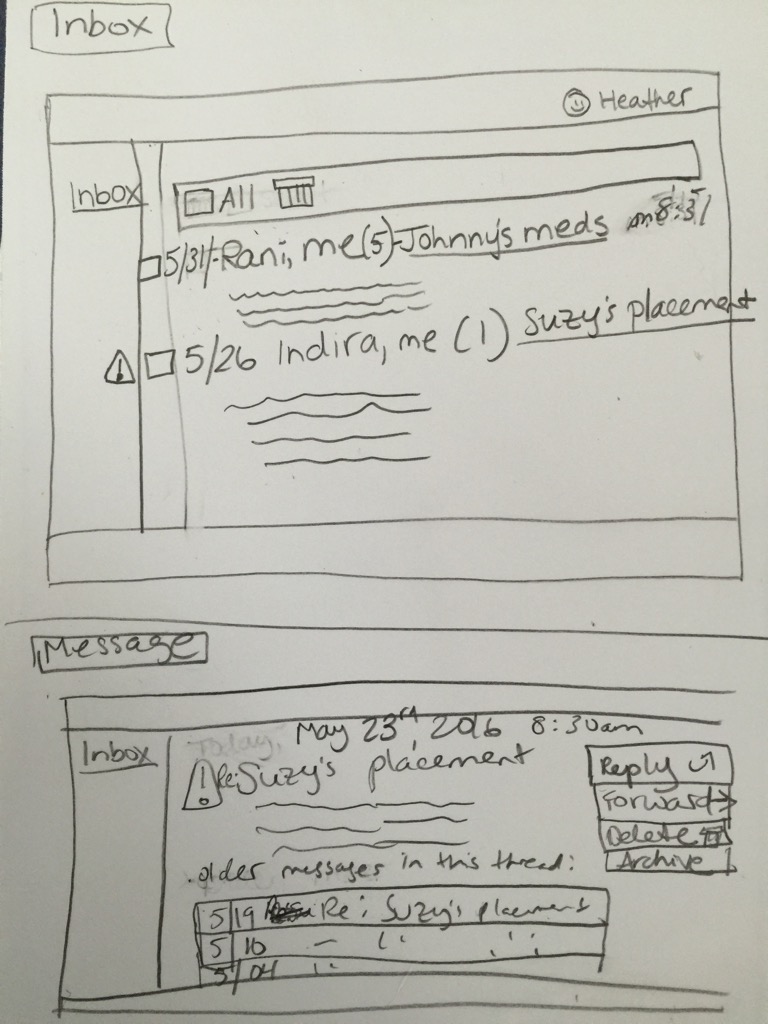 Inbox
Heather
Inbox
All
5/31-Rani, me (5)-Johnny's meds
5/26 Indira, me (1) Suzy's placement
Message
May 23rd, 2016 8:30am
Inbox
Today,
Re: Suzy's placement
Reply
Forward
Delete
Archive
older messages in this thread:
5/19 Re: Suzy's placement
5 10
5/04